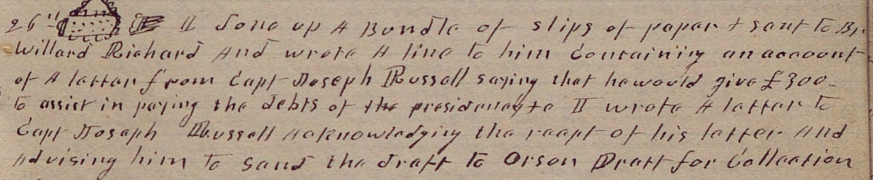 26th I done up A Bundle of slips of paper & sent to Br.
Willard Richard And wrote A line to him Containing an account
of A letter from Capt Joseph Russell saying that he would give £300-
to assist in paying the debts of the presidency I wrote A letter to
Capt Joseph Russell Acknowledging the recept of his letter And
Advising him to send the draft to Orson Pratt for Collection